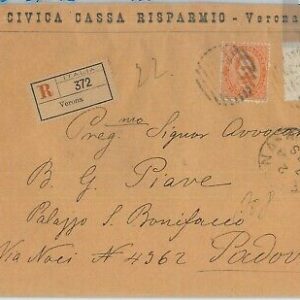 CIVICA CASSA RISPARMIO - Verona
R
ITALIA
372
Verona
22.
Preg.mo Signor Avvocato
B. G. Piave
Palazzo S. Bonifacio
Via Noci N 4362 Padov